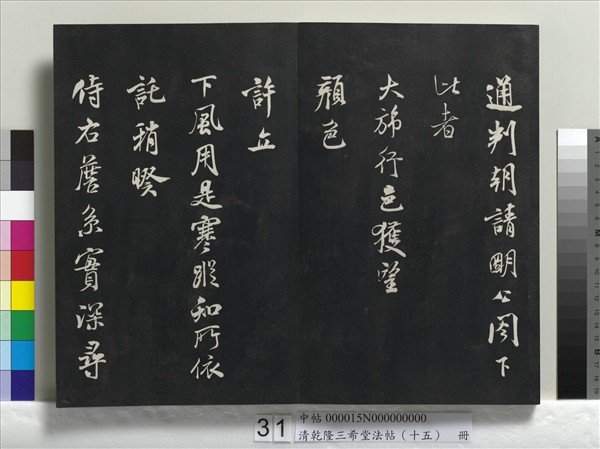 通判朝請明公閤下
比者
大旆行邑獲望
顏色
許立
下風用是寒蹤知所依
託稍暌
侍右詹系實深尋
31
中帖 000015N000000000
清乾隆三希堂法帖（十五） 冊